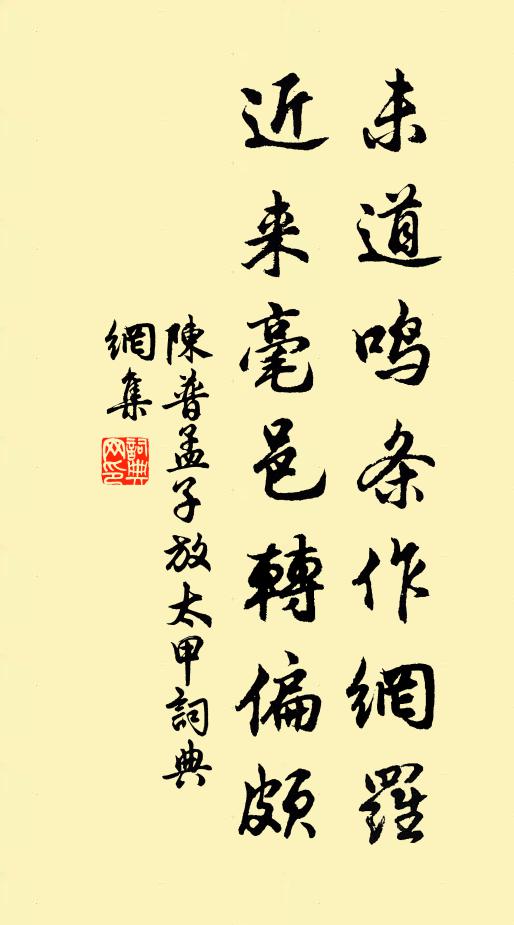 未道鸣条作網羅
近来毫邑轉偏頗
陳普孟子放太甲詞典
網集
詞典
网印